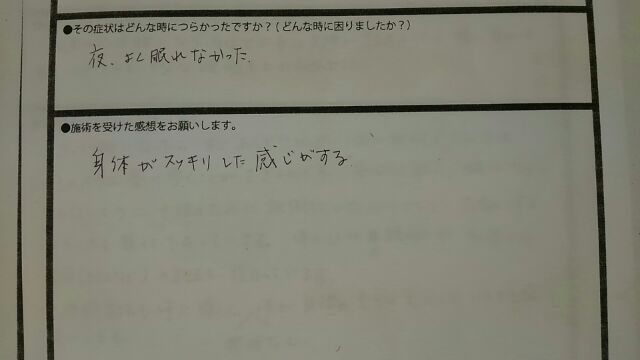 ●その症状はどんな時につらかったですか？(どんな時に困りましたか？)
夜、よく眠れなかった.
●施術を受けた感想をお願いします。
身体がスッキリした感じがする